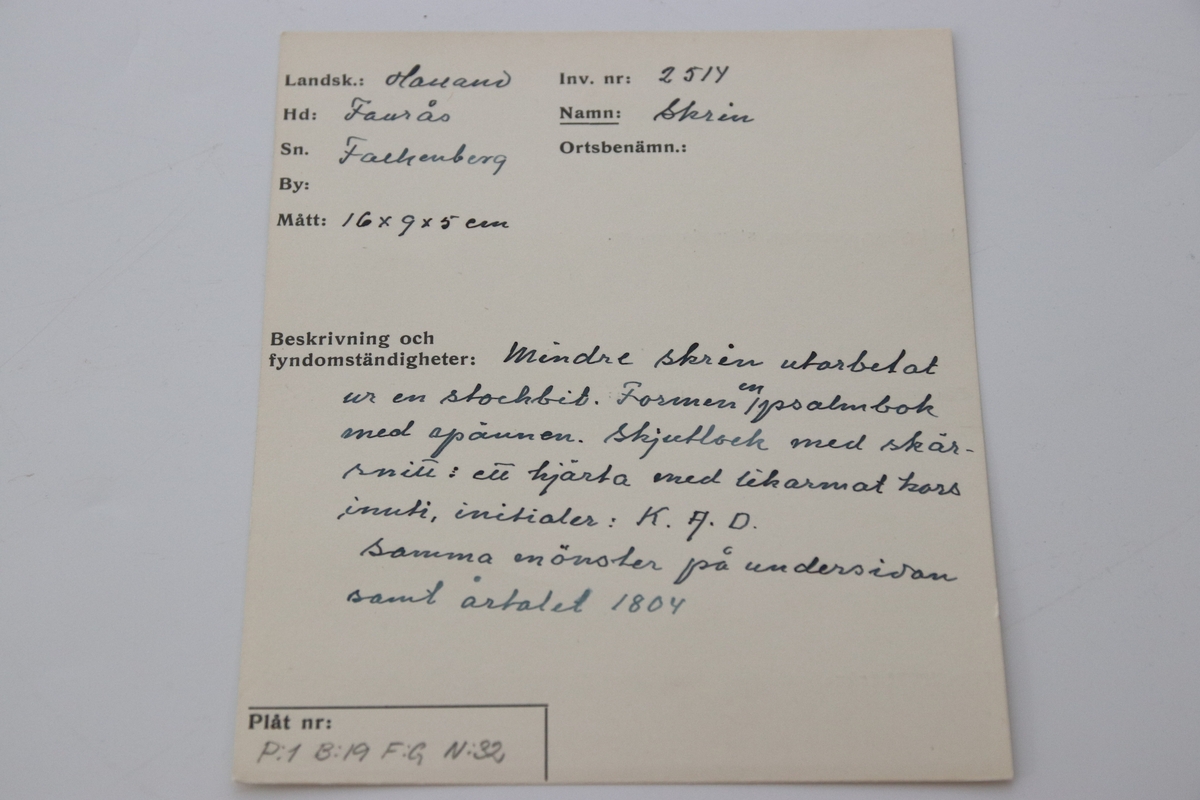 Landsk.: Halland Inv. nr: 2514
Hd: Faurås Namn: Skrin
Sn. Falkenberg Ortsbenämn.:
By:
Mått: 16 x 9 x 5 cm
Beskrivning och
fyndomständigheter: Mindre skrin utarbetat
ur en stockbit. Formen en psalmbok
med spännen. Skjutlock med skär-
snitt: ett hjärta med likarmat kors
inuti, initialer: K. A. D.
Samma mönster på undersidan
samt årtalet 1804
Plåt nr:
P:1 B:19 F:G N:32